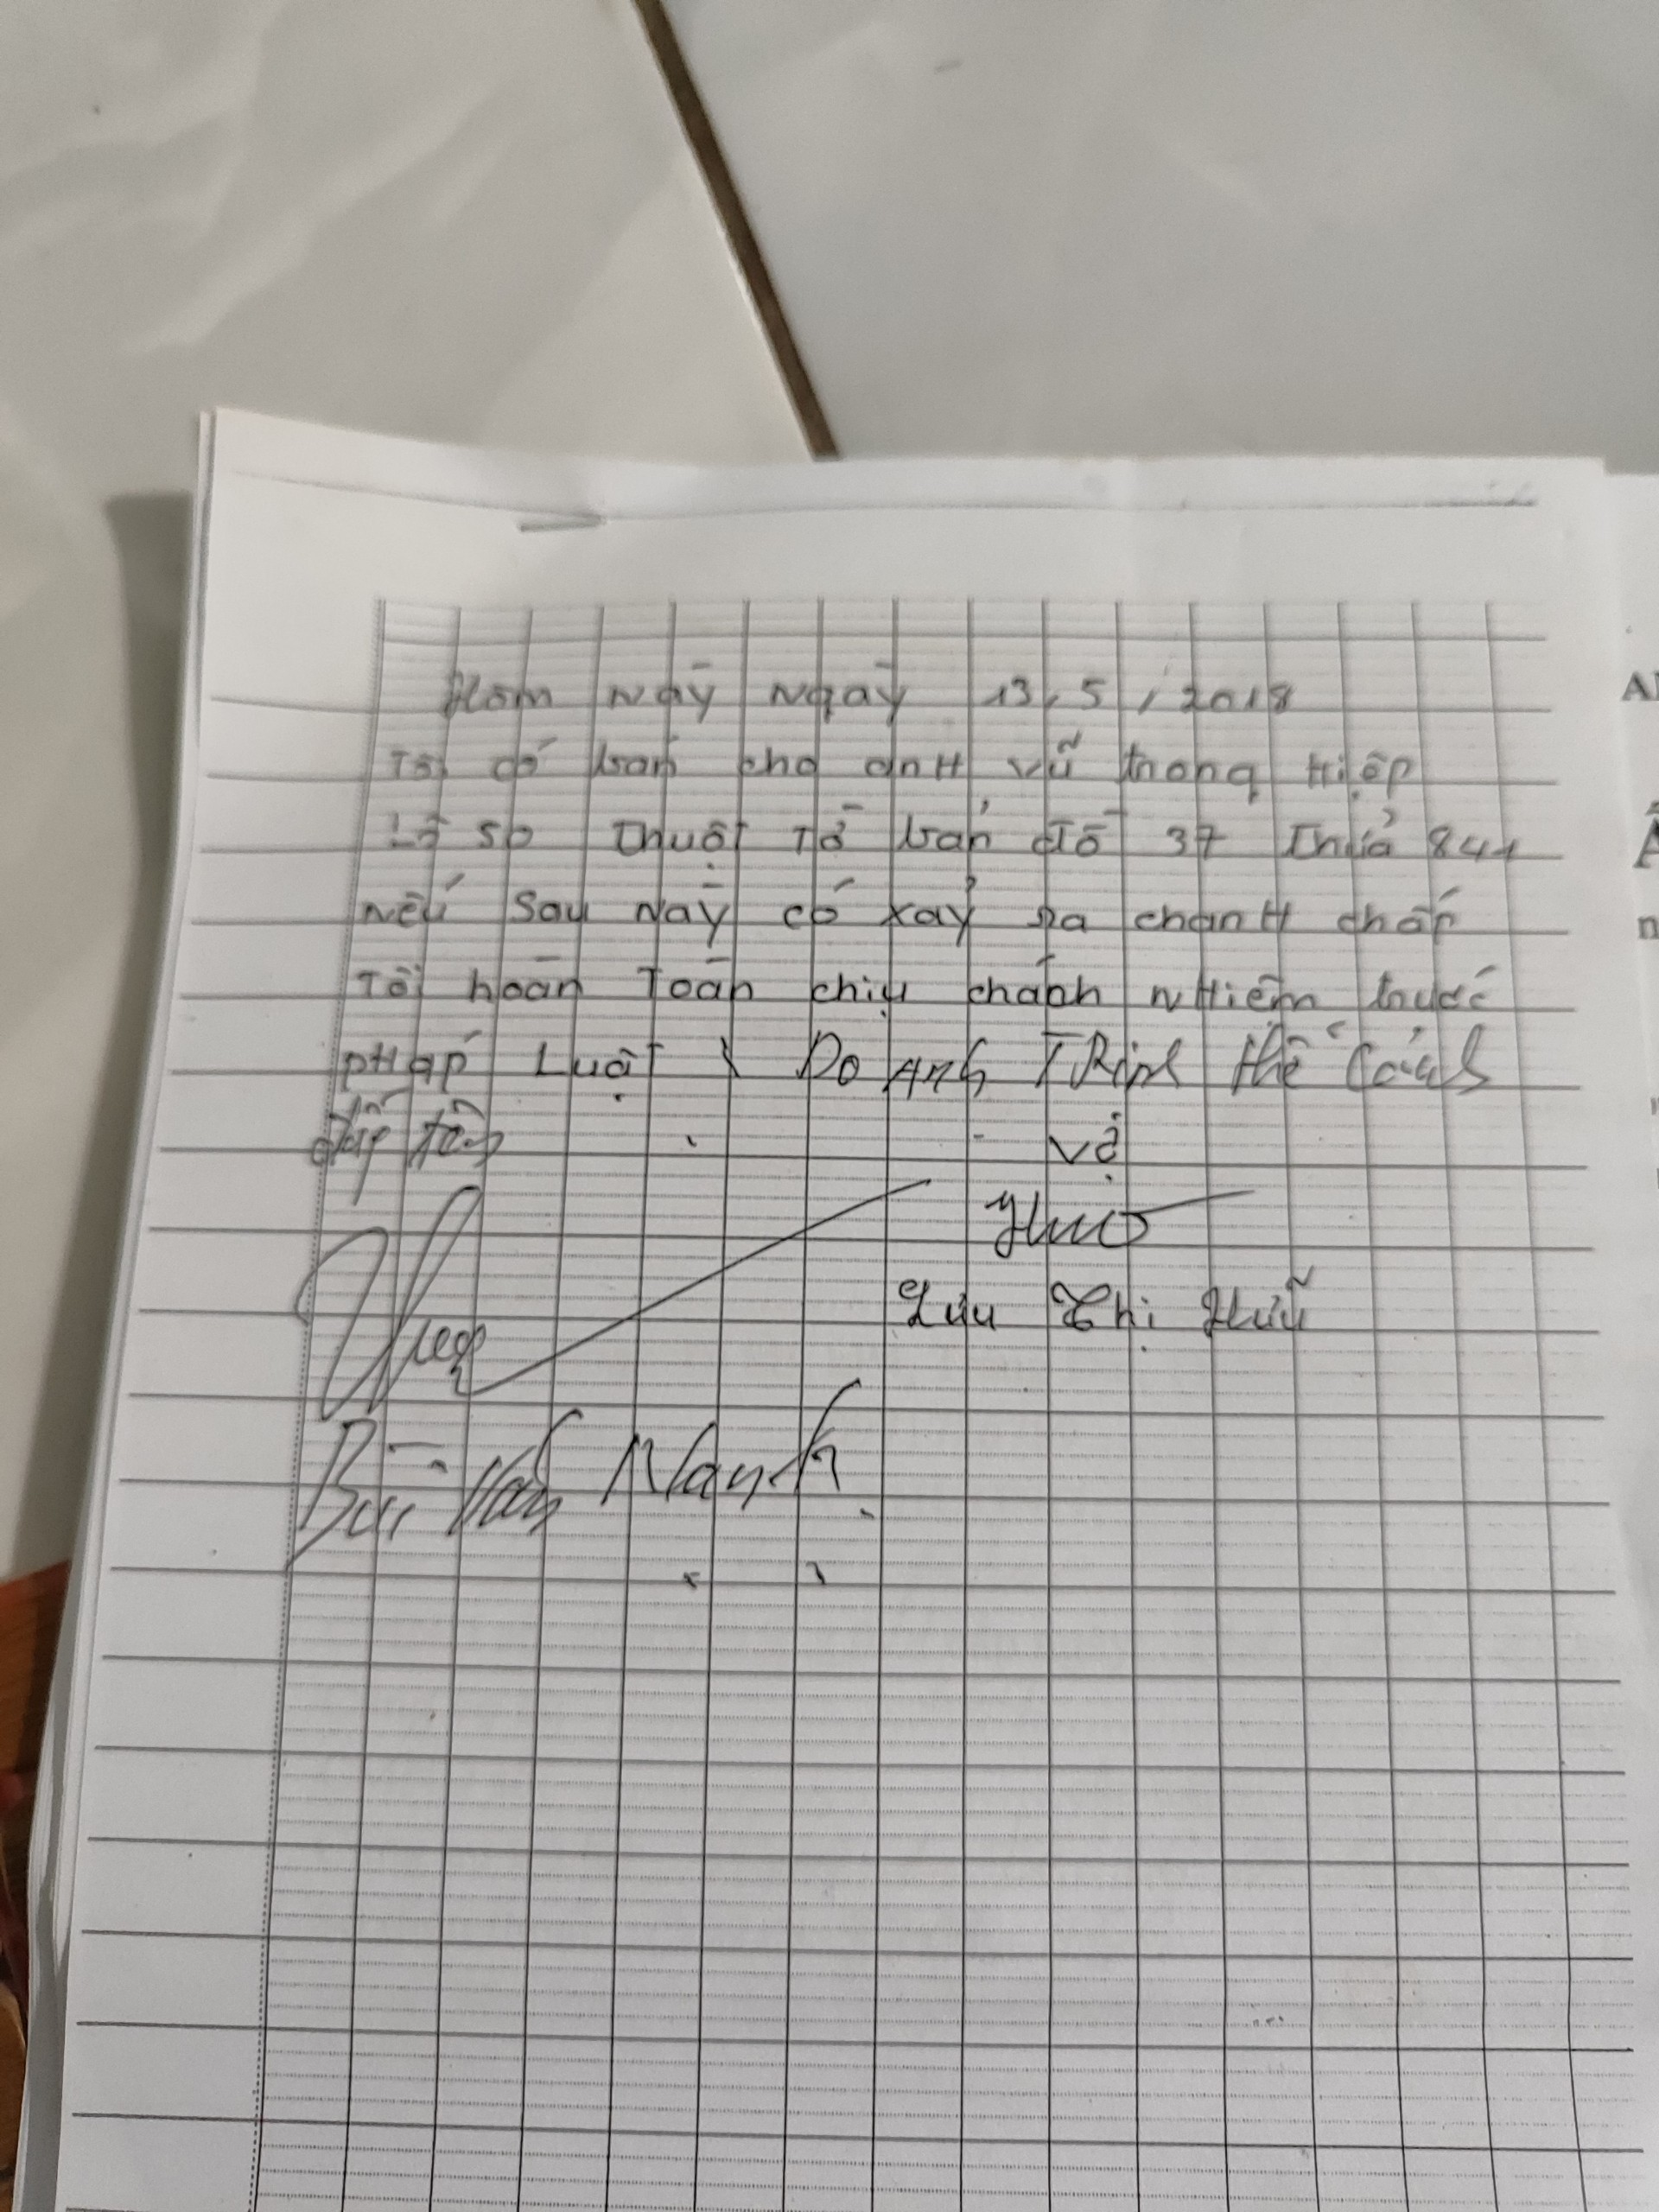 Hôm này ngày 13,5,2018
Tôi có bán cho anH vũ trong Hiệp
Lô số thuột tờ bản đồ 37 Thửa 841
nếu sau này có xảy ra chanH chấp
Tôi hoàn Toàn chịu chánh nHiệm trước
pHáp Luật Do Anh TRịnh thế Cảnh
đứng tên
vợ
Lưu Thị Hữu
Bùi Văn Mạnh